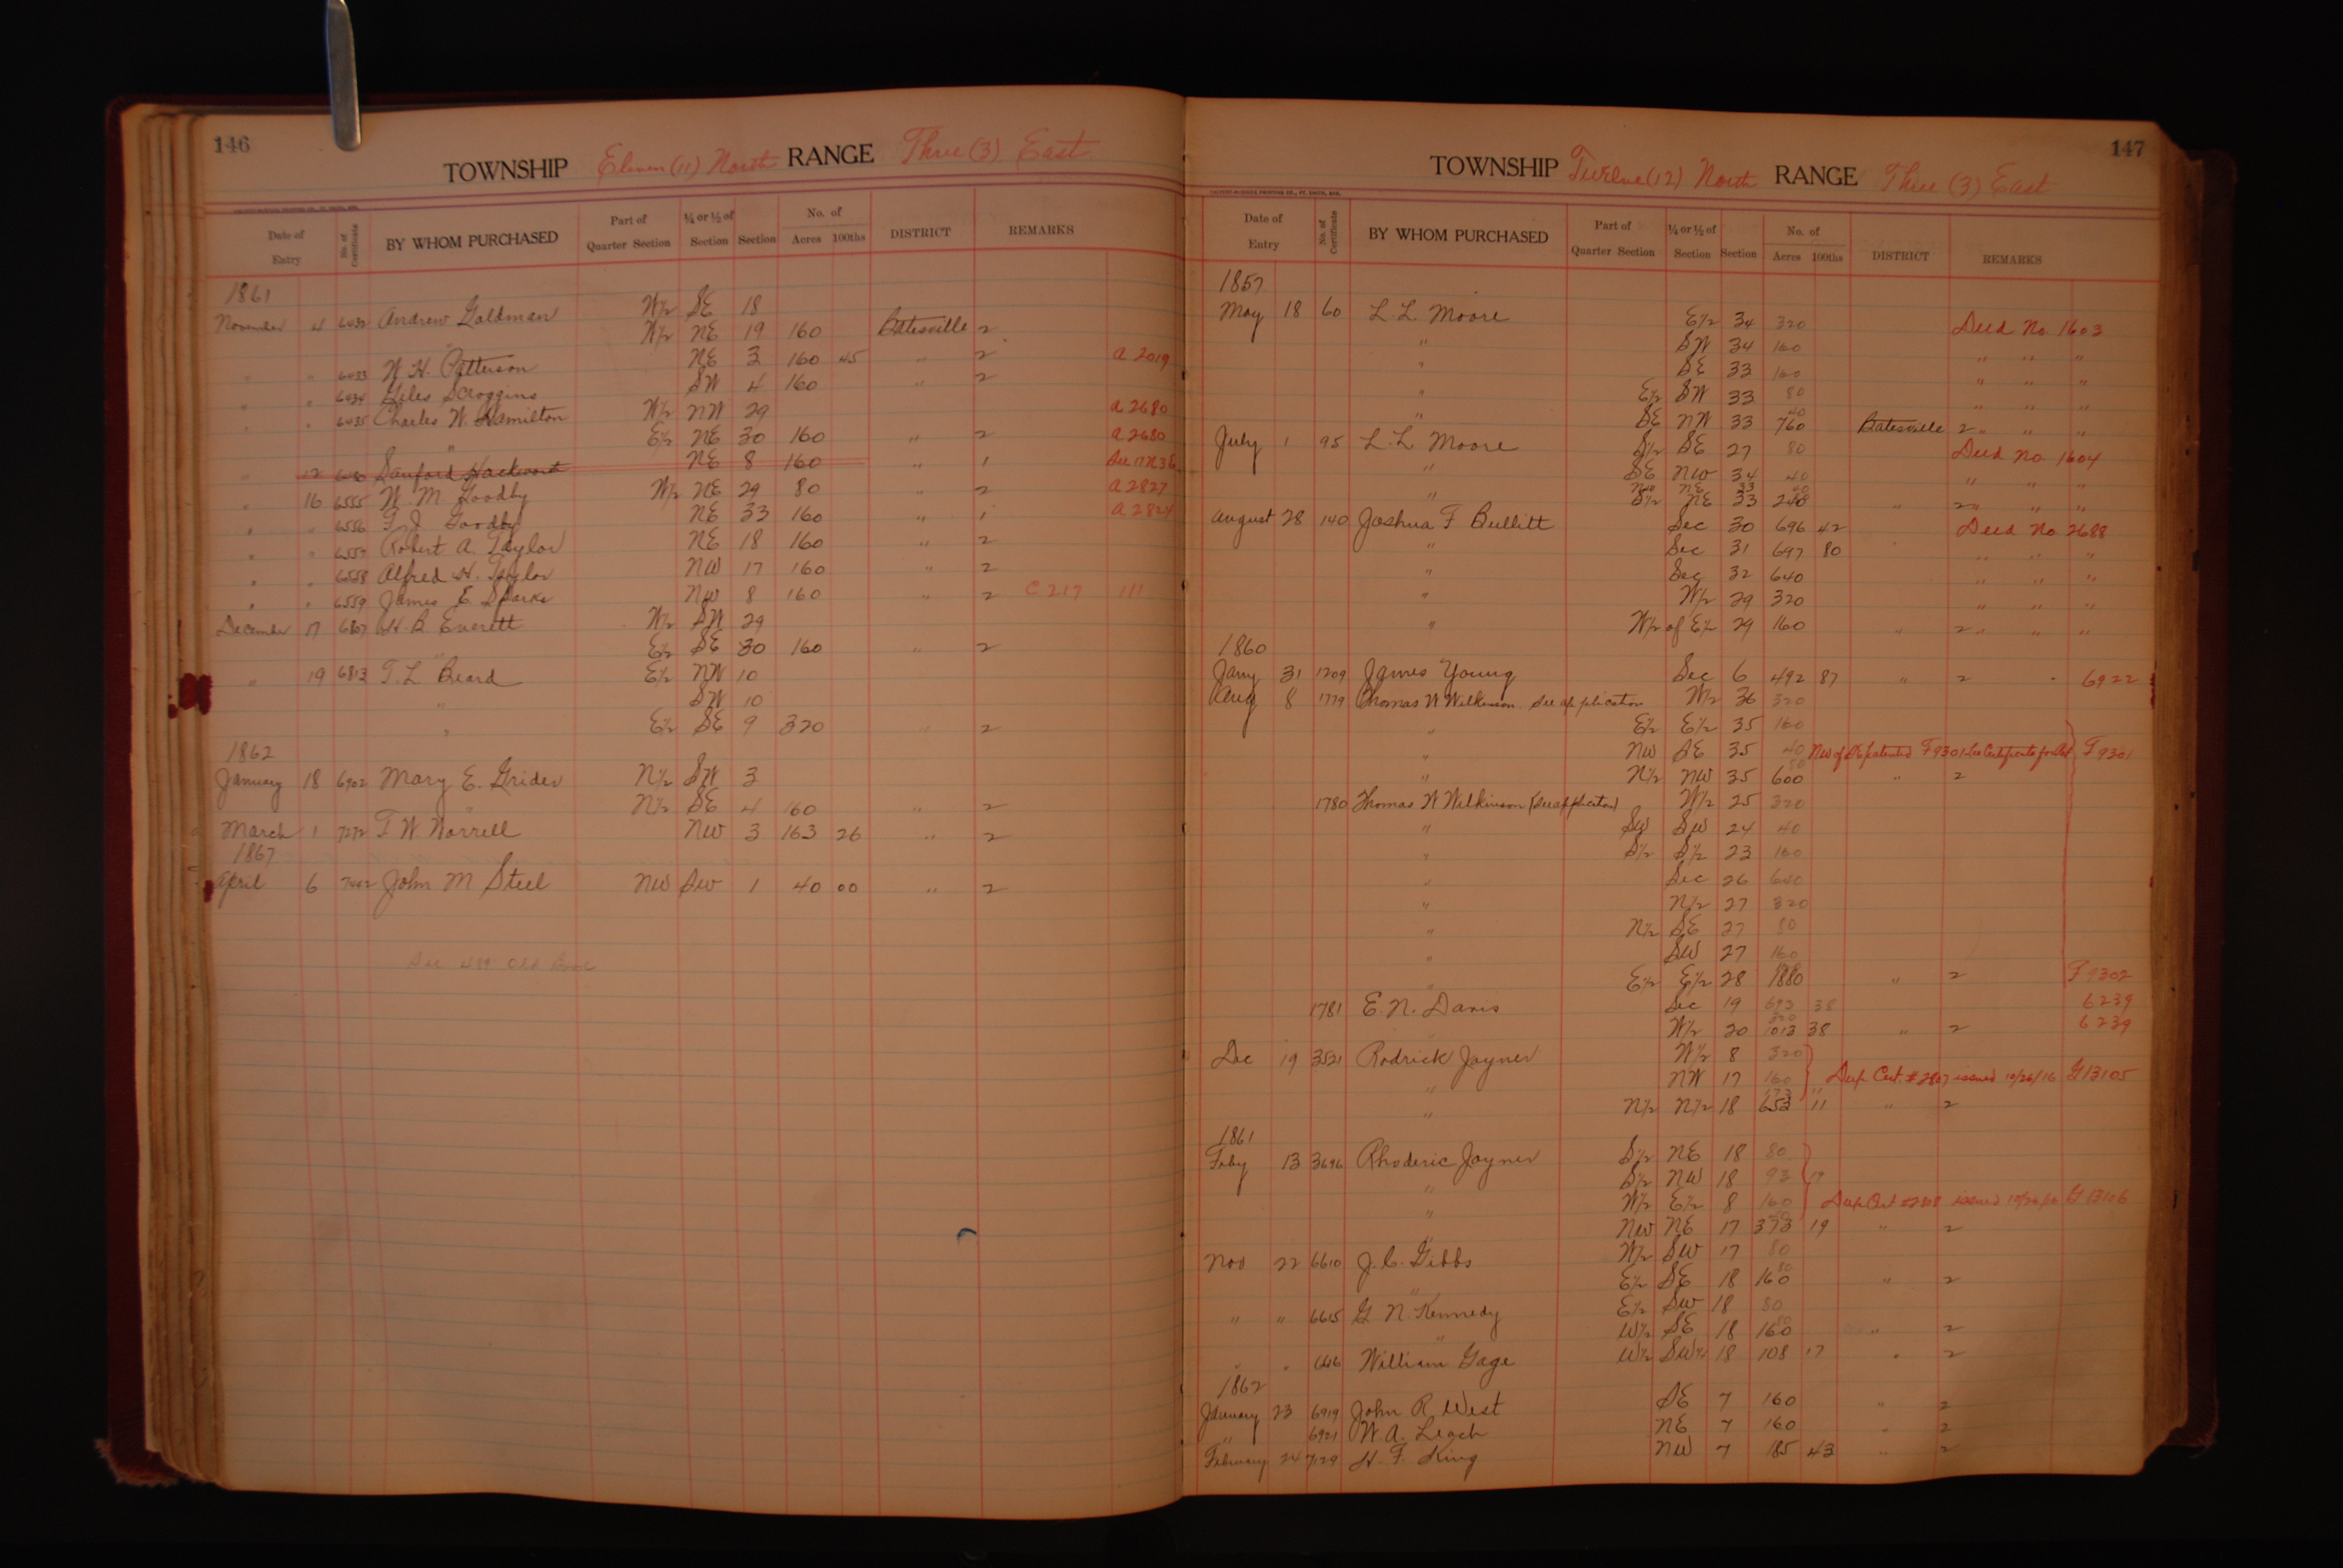 146
TOWNSHIP Eleven (11) North RANGE Three (3) East
Date of Entry No. of Certificate BY WHOM PURCHASED Part of Quarter Section ¼ or ½ of Section Section No. of Acres 100ths DISTRICT REMARKS
1861
November 4 6432 Andrew Goldman W½ SE 18
W½ NE 19 160 Batesville 2
" " 6433 W. H. Patterson NE 3 160 45 " 2 A 2019
" " 6434 Giles Scroggins SW 4 160 " 2
" " 6435 Charles W. Hamilton W½ NW 29 A 2680
" E½ NE 30 160 " 2 A 2680
" 12 Sanford Hackworth NE 8 160 " 1
" 16 6555 W. M. Goodby W½ NE 29 80 " 2 A 2827
" " 6556 G. J. Goodby NE 33 160 " 1 A 2824
" " 6557 Robert A. Taylor NE 18 160 " 2
" " 6558 Alfred H. Taylor NW 17 160 " 2
" " 6559 James E. Sparks NW 8 160 " 2 C 217 111
December 17 6807 H. B Everett W½ SW 29
" E½ SE 30 160 " 2
" 19 6813 T. L Beard E½ NW 10
" SW 10
" E½ SE 9 320 " 2
1862
January 18 6902 Mary E. Grider N½ SW 3
" N½ SE 4 160 " 2
March 1 7272 T W Worrell NW 3 163 26 " 2
1867
April 6 John M Steel NW SW 1 40 00 " 2
See 489 Old Book
147
TOWNSHIP Twelve (12) North RANGE Three (3) East
Date of Entry No. of Certificate BY WHOM PURCHASED Part of Quarter Section ¼ or ½ of Section Section No. of Acres 100ths DISTRICT REMARKS
1857
May 18 60 L. L. Moore E½ 34 320 Deed No. 1603
" SW 34 160 " " "
" SE 33 160 " " "
" E½ SW 33 80 " " "
" SE NW 33 40 760 Batesville 2 " " "
July 1 95 L. L. Moore S½ SE 27 80 Deed No. 1604
" SE NW 34 40 " " "
NW NE 33 40
" S½ NE 33 240 " 2 " " "
August 28 140 Joshua F Bullitt Sec 30 696 42 Deed No 2688
" Sec 31 697 80 " " "
" Sec 32 640 " " "
" W½ 29 320 " " "
" W½ of E½ 29 160 " 2 " " "
1860
Jany 31 1209 James Young Sec 6 492 87 " 2 6922
Aug 8 1779 Thomas W Wilkinson See application W½ 36 320
" E½ E½ 35 160
" NW SE 35 40 NW of SE patented F9301 See Certificate for Def F 9301
" N½ NW 35 80 600 " 2
1780 Thomas W Wilkinson (See application) W½ 25 320
" SW SW 24 40
" S½ S½ 23 160
" Sec 26 640
" N½ 27 320
" N½ SE 27 80
" SW 27 160
" E½ E½ 28 1880 " 2 F 9302
1781 E. N. Davis Sec 19 693 38 6239
W½ 20 320 1013 38 " 2 6239
Dec 19 3521 Rodrick Joyner W½ 8 320
" NW 17 160 Dup Cert. # 2807 issued 10/26/16 G 13105
" N½ N½ 18 173 653 11 " 2
1861
Feby 13 3696 Rhoderic Joyner S½ NE 18 80
" S½ NW 18 93 19
" W½ E½ 8 160 Dup Cert #2808 issued 10/26/16 G 13106
" NW NE 17 40 373 19 " 2
Nov 22 6610 J. C. Gibbs W½ SW 17 80
" E½ SE 18 80 160 " 2
" " 6615 G N Kennedy E½ SW 18 80
" W½ SE 18 80 160 " 2
" " William Gage W½ SW¼ 18 108 17 " 2
1862
January 23 6919 John R. West SE 7 160 " 2
" 6921 W. A. Leach NE 7 160 " 2
February 24 7129 H. F. King NW 7 185 43 " 2